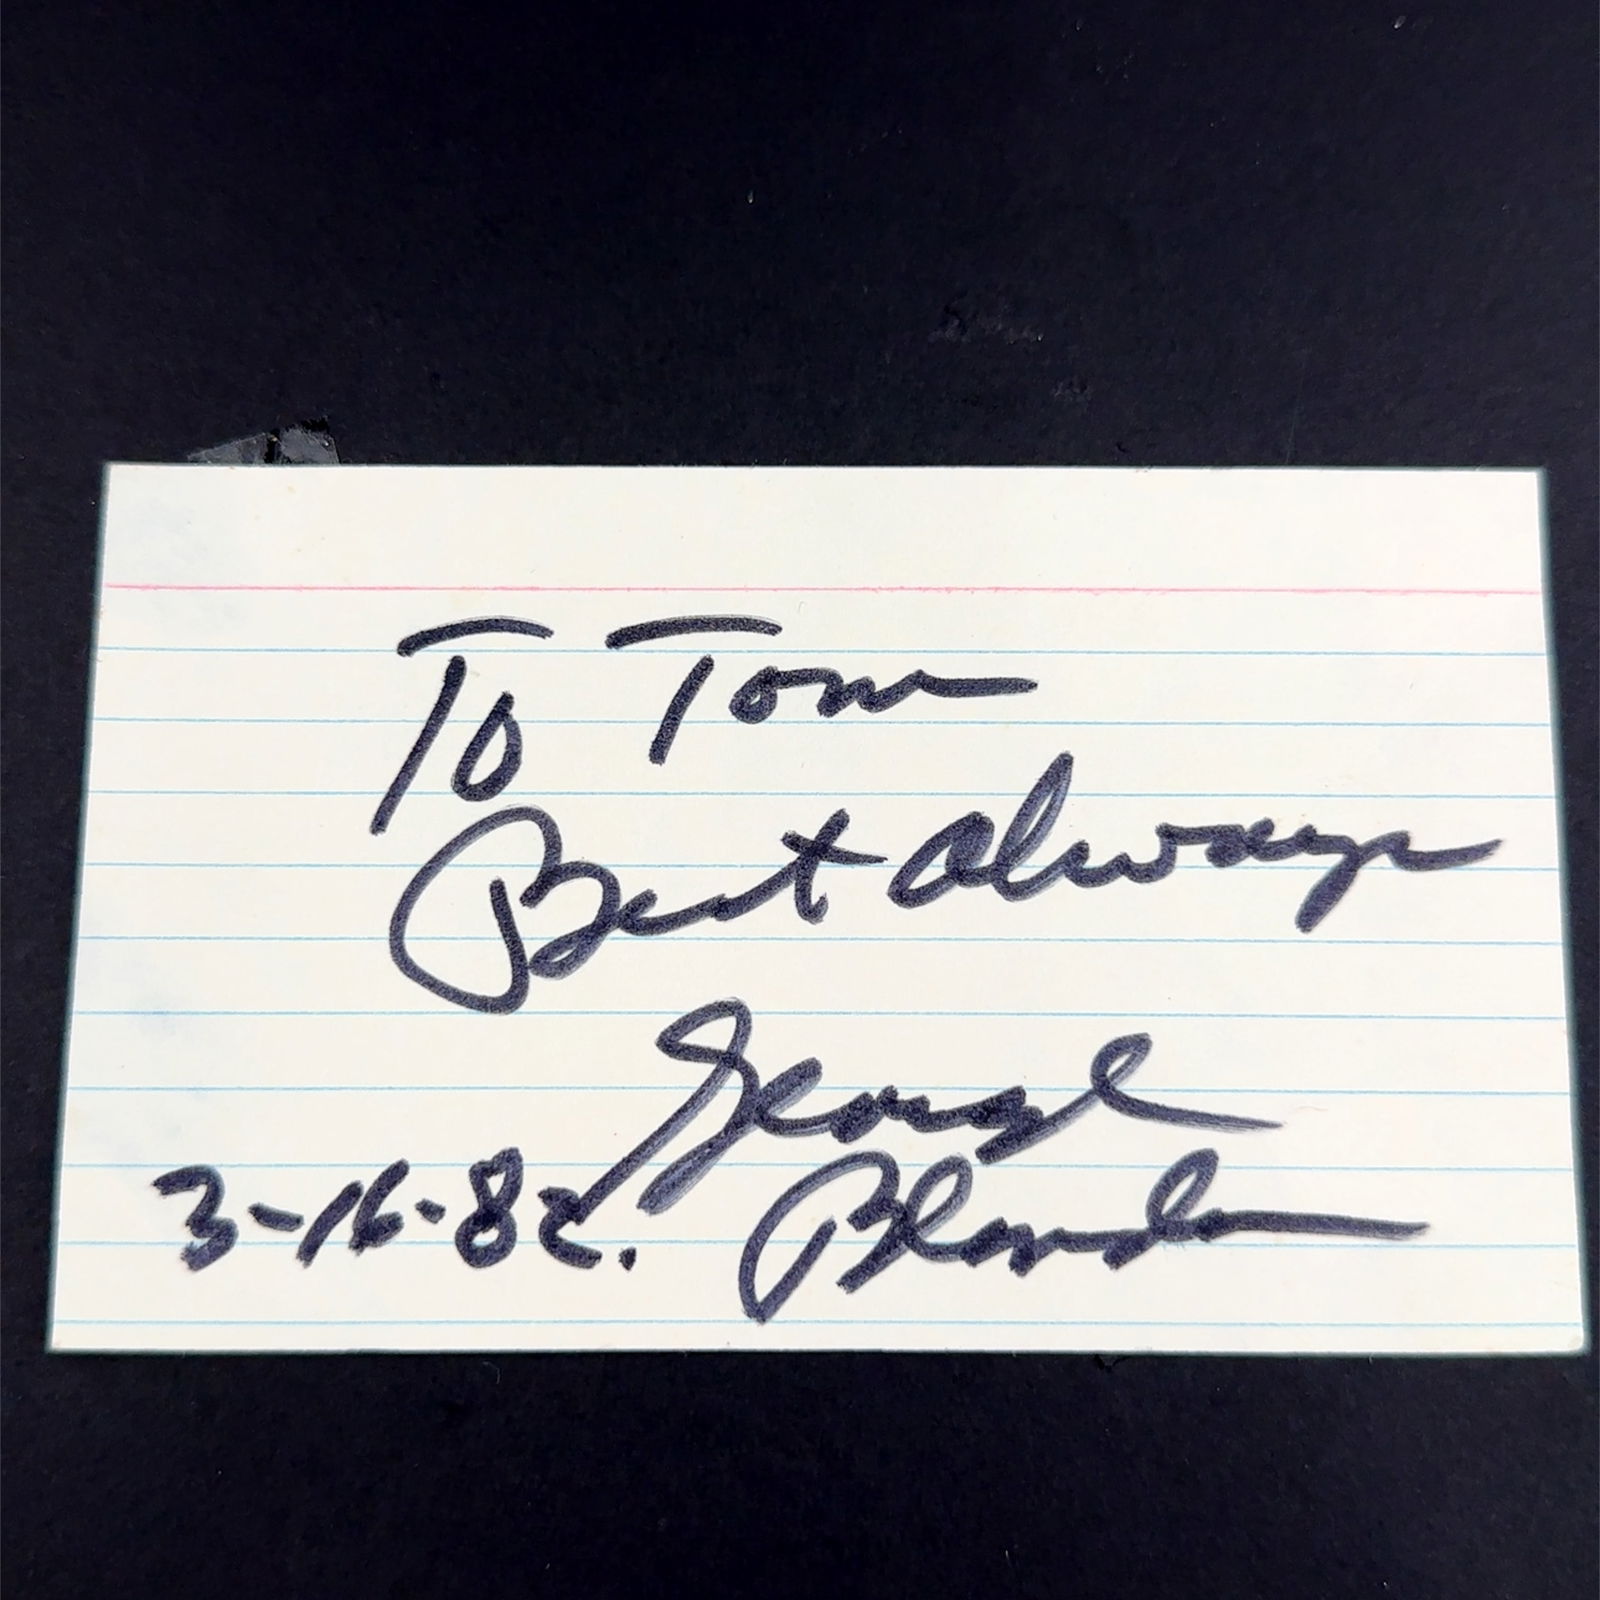 To Tom
Best always
George
Blanda
3-16-82.